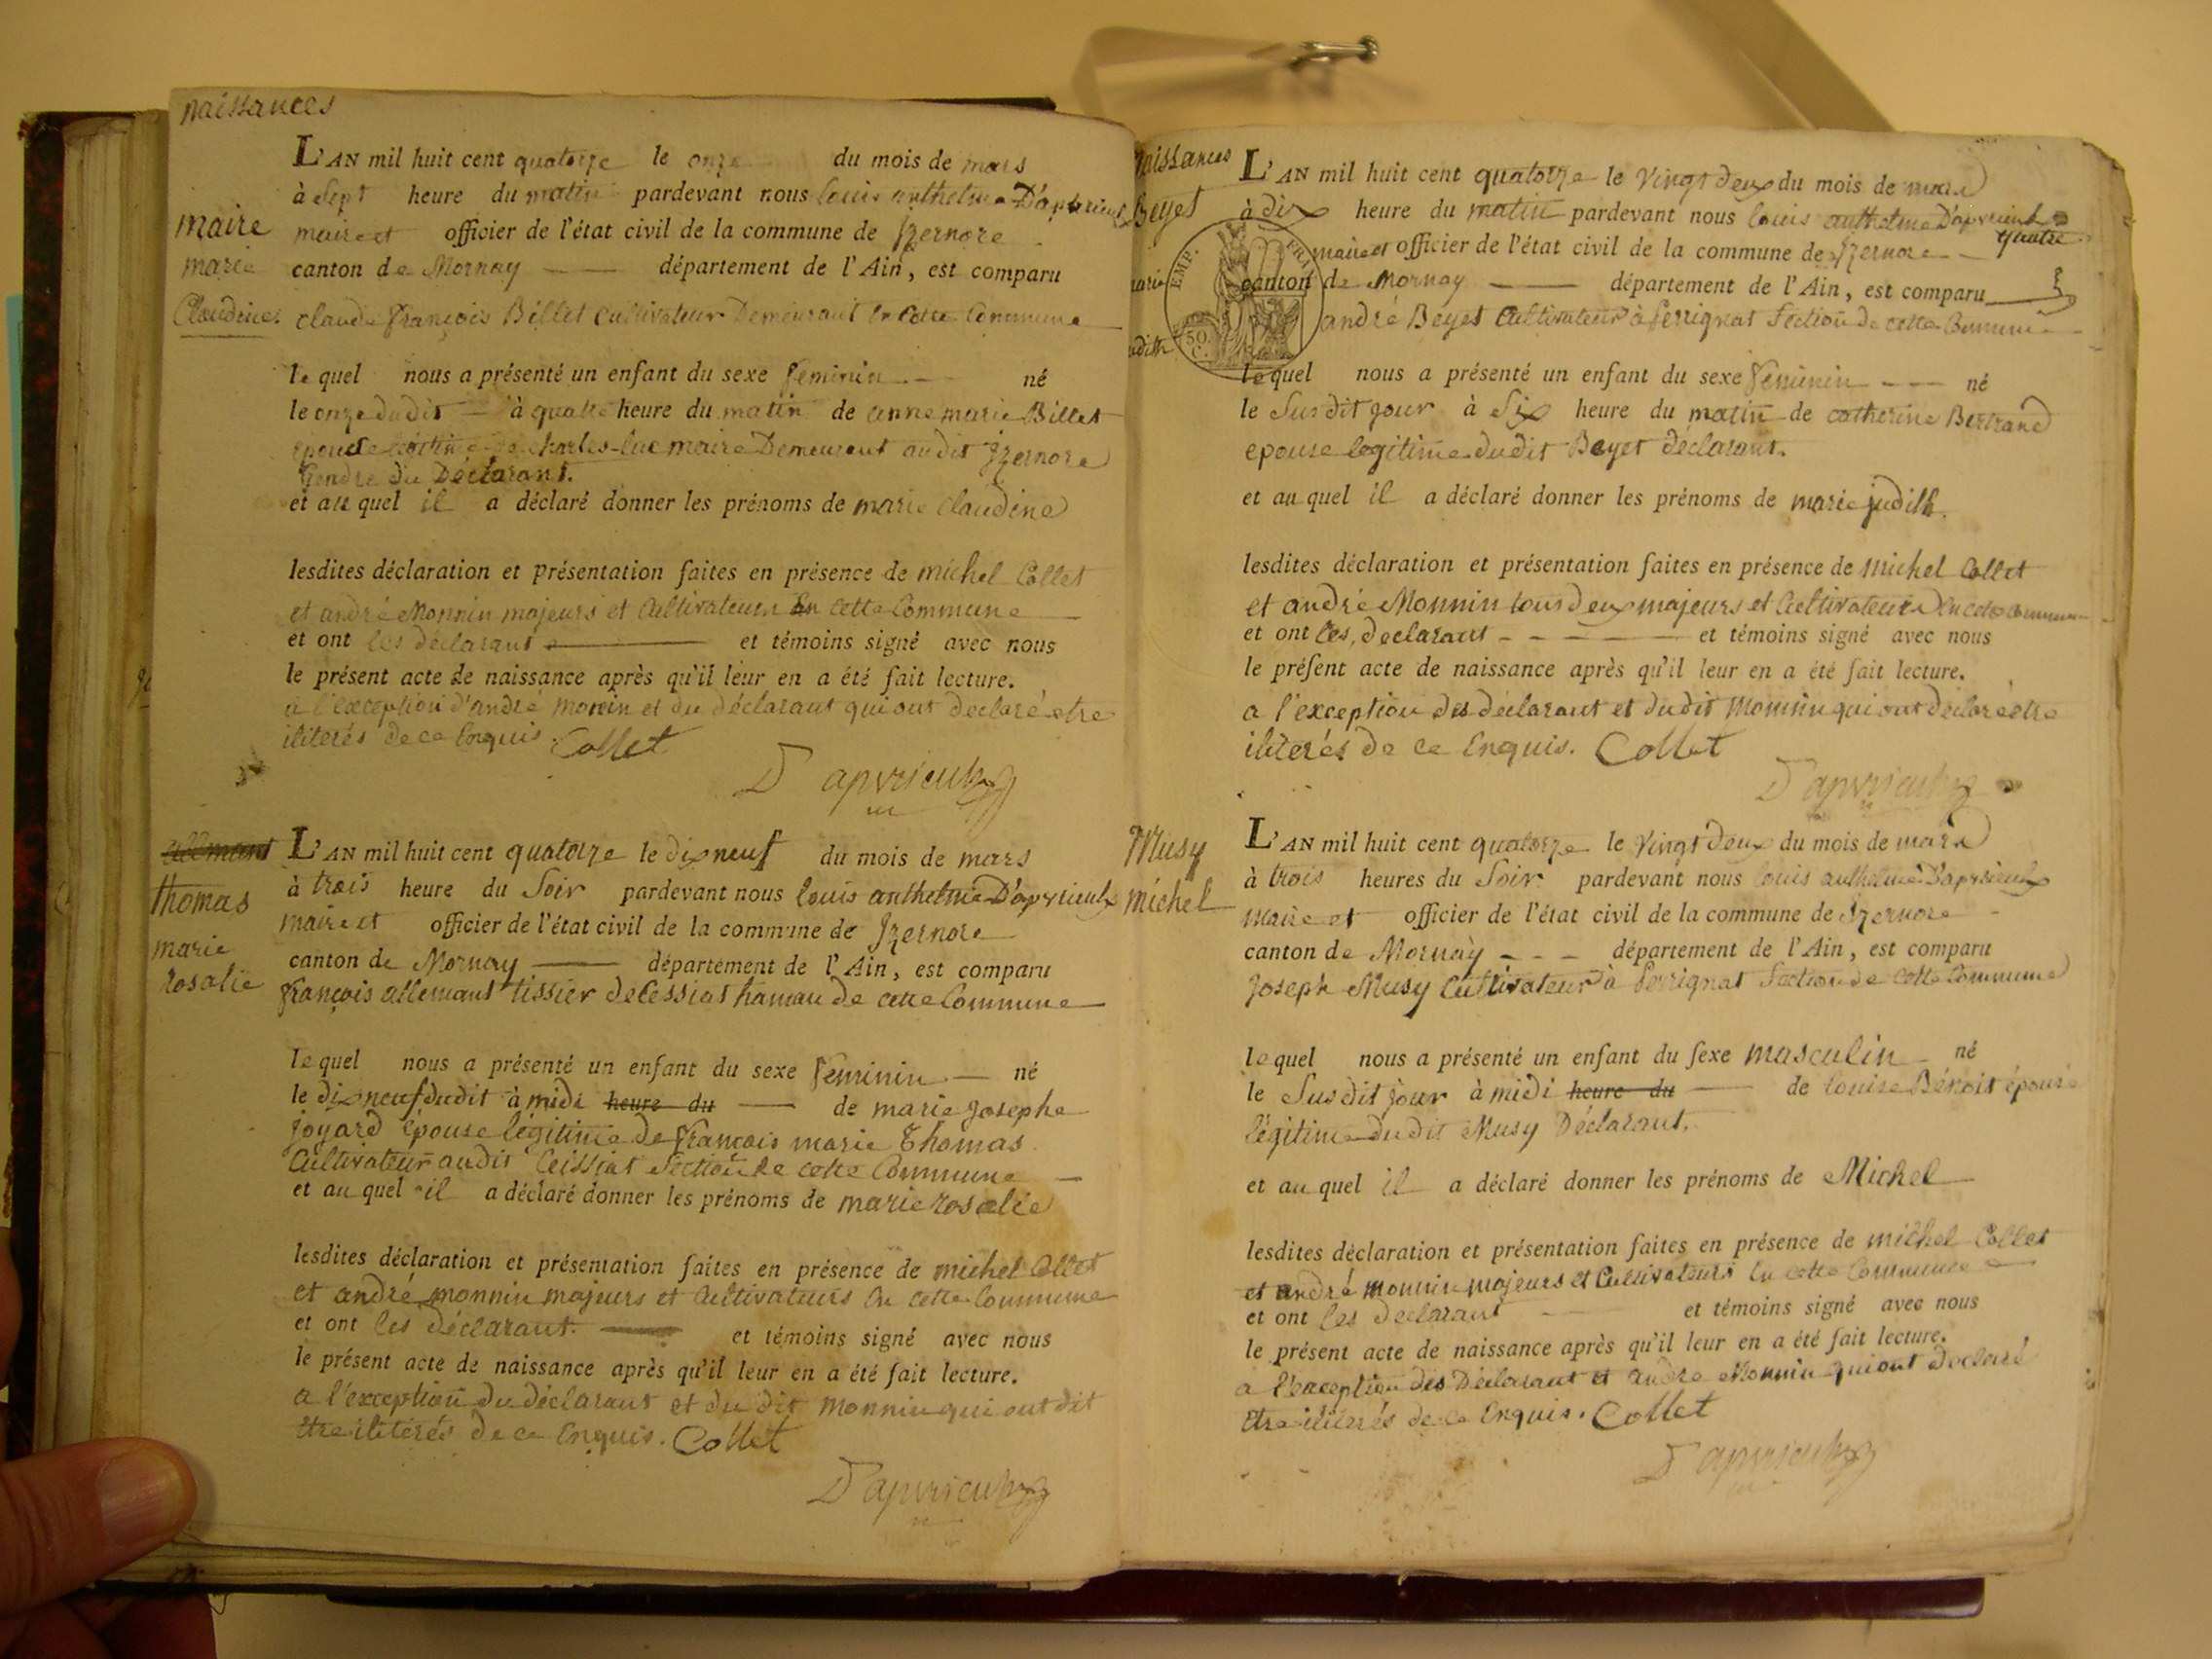 naissances
L'AN mil huit cent quatorze le onze du mois de mars
à sept heure du matin pardevant nous louis anthelme D'apvrieulx
maire et officier de l'état civil de la commune de Izernore
canton de Mornay département de l'Ain, est comparu
claude françois Billet cultivateur Demeurant en cette Commune
maire
marie
Claudine.
le quel nous a présenté un enfant du sexe feminin né
le onze dudit à quatre heure du matin de anne marie Billet
epouse légitime de charles-luc maire Demeurant audit Izernore
Gendre du Déclarant.
et au quel il a déclaré donner les prénoms de marie Claudine
lesdites déclaration et présentation faites en présence de michel Collet
et andré Monnin majeurs et Cultivateurs En cette Commune
et ont les déclarant et témoins signé avec nous
le présent acte de naissance après qu'il leur en a été fait lecture.
a l'exception d'andré monnin et du déclarant qui ont déclaré etre
iliterés de ce Enquis. Collet
D'apvrieulx
thomas
marie
rosalie
L'AN mil huit cent quatorze le dix neuf du mois de mars
à trois heure du Soir pardevant nous louis anthelme D'apvrieulx
maire et officier de l'état civil de la commune de Izernore
canton de Mornay département de l'Ain, est comparu
françois allemant tissier de Cessiat hamau de cette Commune
le quel nous a présenté un enfant du sexe feminin né
le dix neuf dudit à midi heure du de marie Josephe
joyard épouse légitime de françois marie Thomas
Cultivateur audit Ceissiat Section de cette Commune
et au quel il a déclaré donner les prénoms de marie rosalie
lesdites déclaration et présentation faites en présence de michel Collet
et andré monnin majeurs et Cultivateurs En cette Commune
et ont les déclarant et témoins signé avec nous
le présent acte de naissance après qu'il leur en a été fait lecture.
a l'exception du déclarant et du dit monnin qui ont dit
etre iliterés de ce Enquis. Collet
D'apvrieulx
naissances
Beyet
marie
judith
EMP. FRAN
50
C.
L'AN mil huit cent quatorze le Vingt deux du mois de mars
à dix heure du matin pardevant nous louis anthelme D'apvrieulx
quatre
maire et officier de l'état civil de la commune de Izernore
canton de Mornay département de l'Ain, est comparu
andré Beyet Cultivateur à perrignat Section de cette Commune
le quel nous a présenté un enfant du sexe feminin né
le Susdit jour à Six heure du matin de catherine Bertrand
epouse legitime dudit Beyet déclarant.
et au quel il a déclaré donner les prénoms de marie judith.
lesdites déclaration et présentation faites en présence de michel Collet
et andré Monnin tous deux majeurs et Cultivateurs En cette Commune
et ont les déclarant et témoins signé avec nous
le présent acte de naissance après qu'il leur en a été fait lecture.
a l'exception des déclarant et dudit Monnin qui ont déclaré etre
iliterés de ce Enquis. Collet
D'apvrieulx
Musy
michel
L'AN mil huit cent quatorze le Vingt deux du mois de mars
à trois heures du Soir pardevant nous louis anthelme D'apvrieulx
maire et officier de l'état civil de la commune de Izernore
canton de Mornay département de l'Ain, est comparu
Joseph Musy Cultivateur à perrignat Section de cette Commune
le quel nous a présenté un enfant du sexe masculin né
le Susdit jour à midi heure du de louise Bénoit épouse
légitime dudit Musy Déclarant.
et au quel il a déclaré donner les prénoms de Michel
lesdites déclaration et présentation faites en présence de michel Collet
et andré monnin majeurs et Cultivateurs En cette Commune
et ont les déclarant et témoins signé avec nous
le présent acte de naissance après qu'il leur en a été fait lecture.
a l'exception des Déclarant et andré Monnin qui ont déclaré
etre iliterés de ce Enquis. Collet
D'apvrieulx